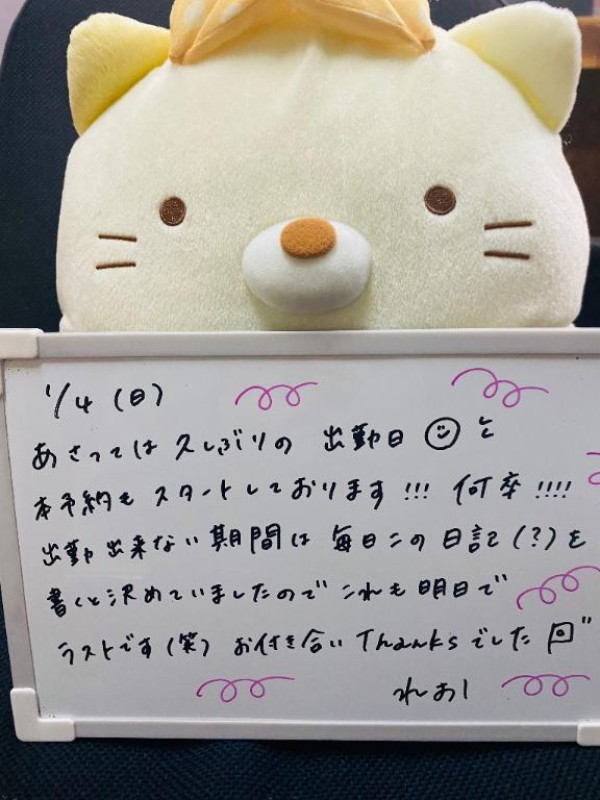 1/4(日)
あさっては久しぶりの 出勤日 と
本予約も スタートしております!!! 何卒!!!!
出勤出来ない期間は 毎日この日記(?)を
書くと決めていましたので これも明日で
ラストです(笑) お付き合い Thanksでした
れおし